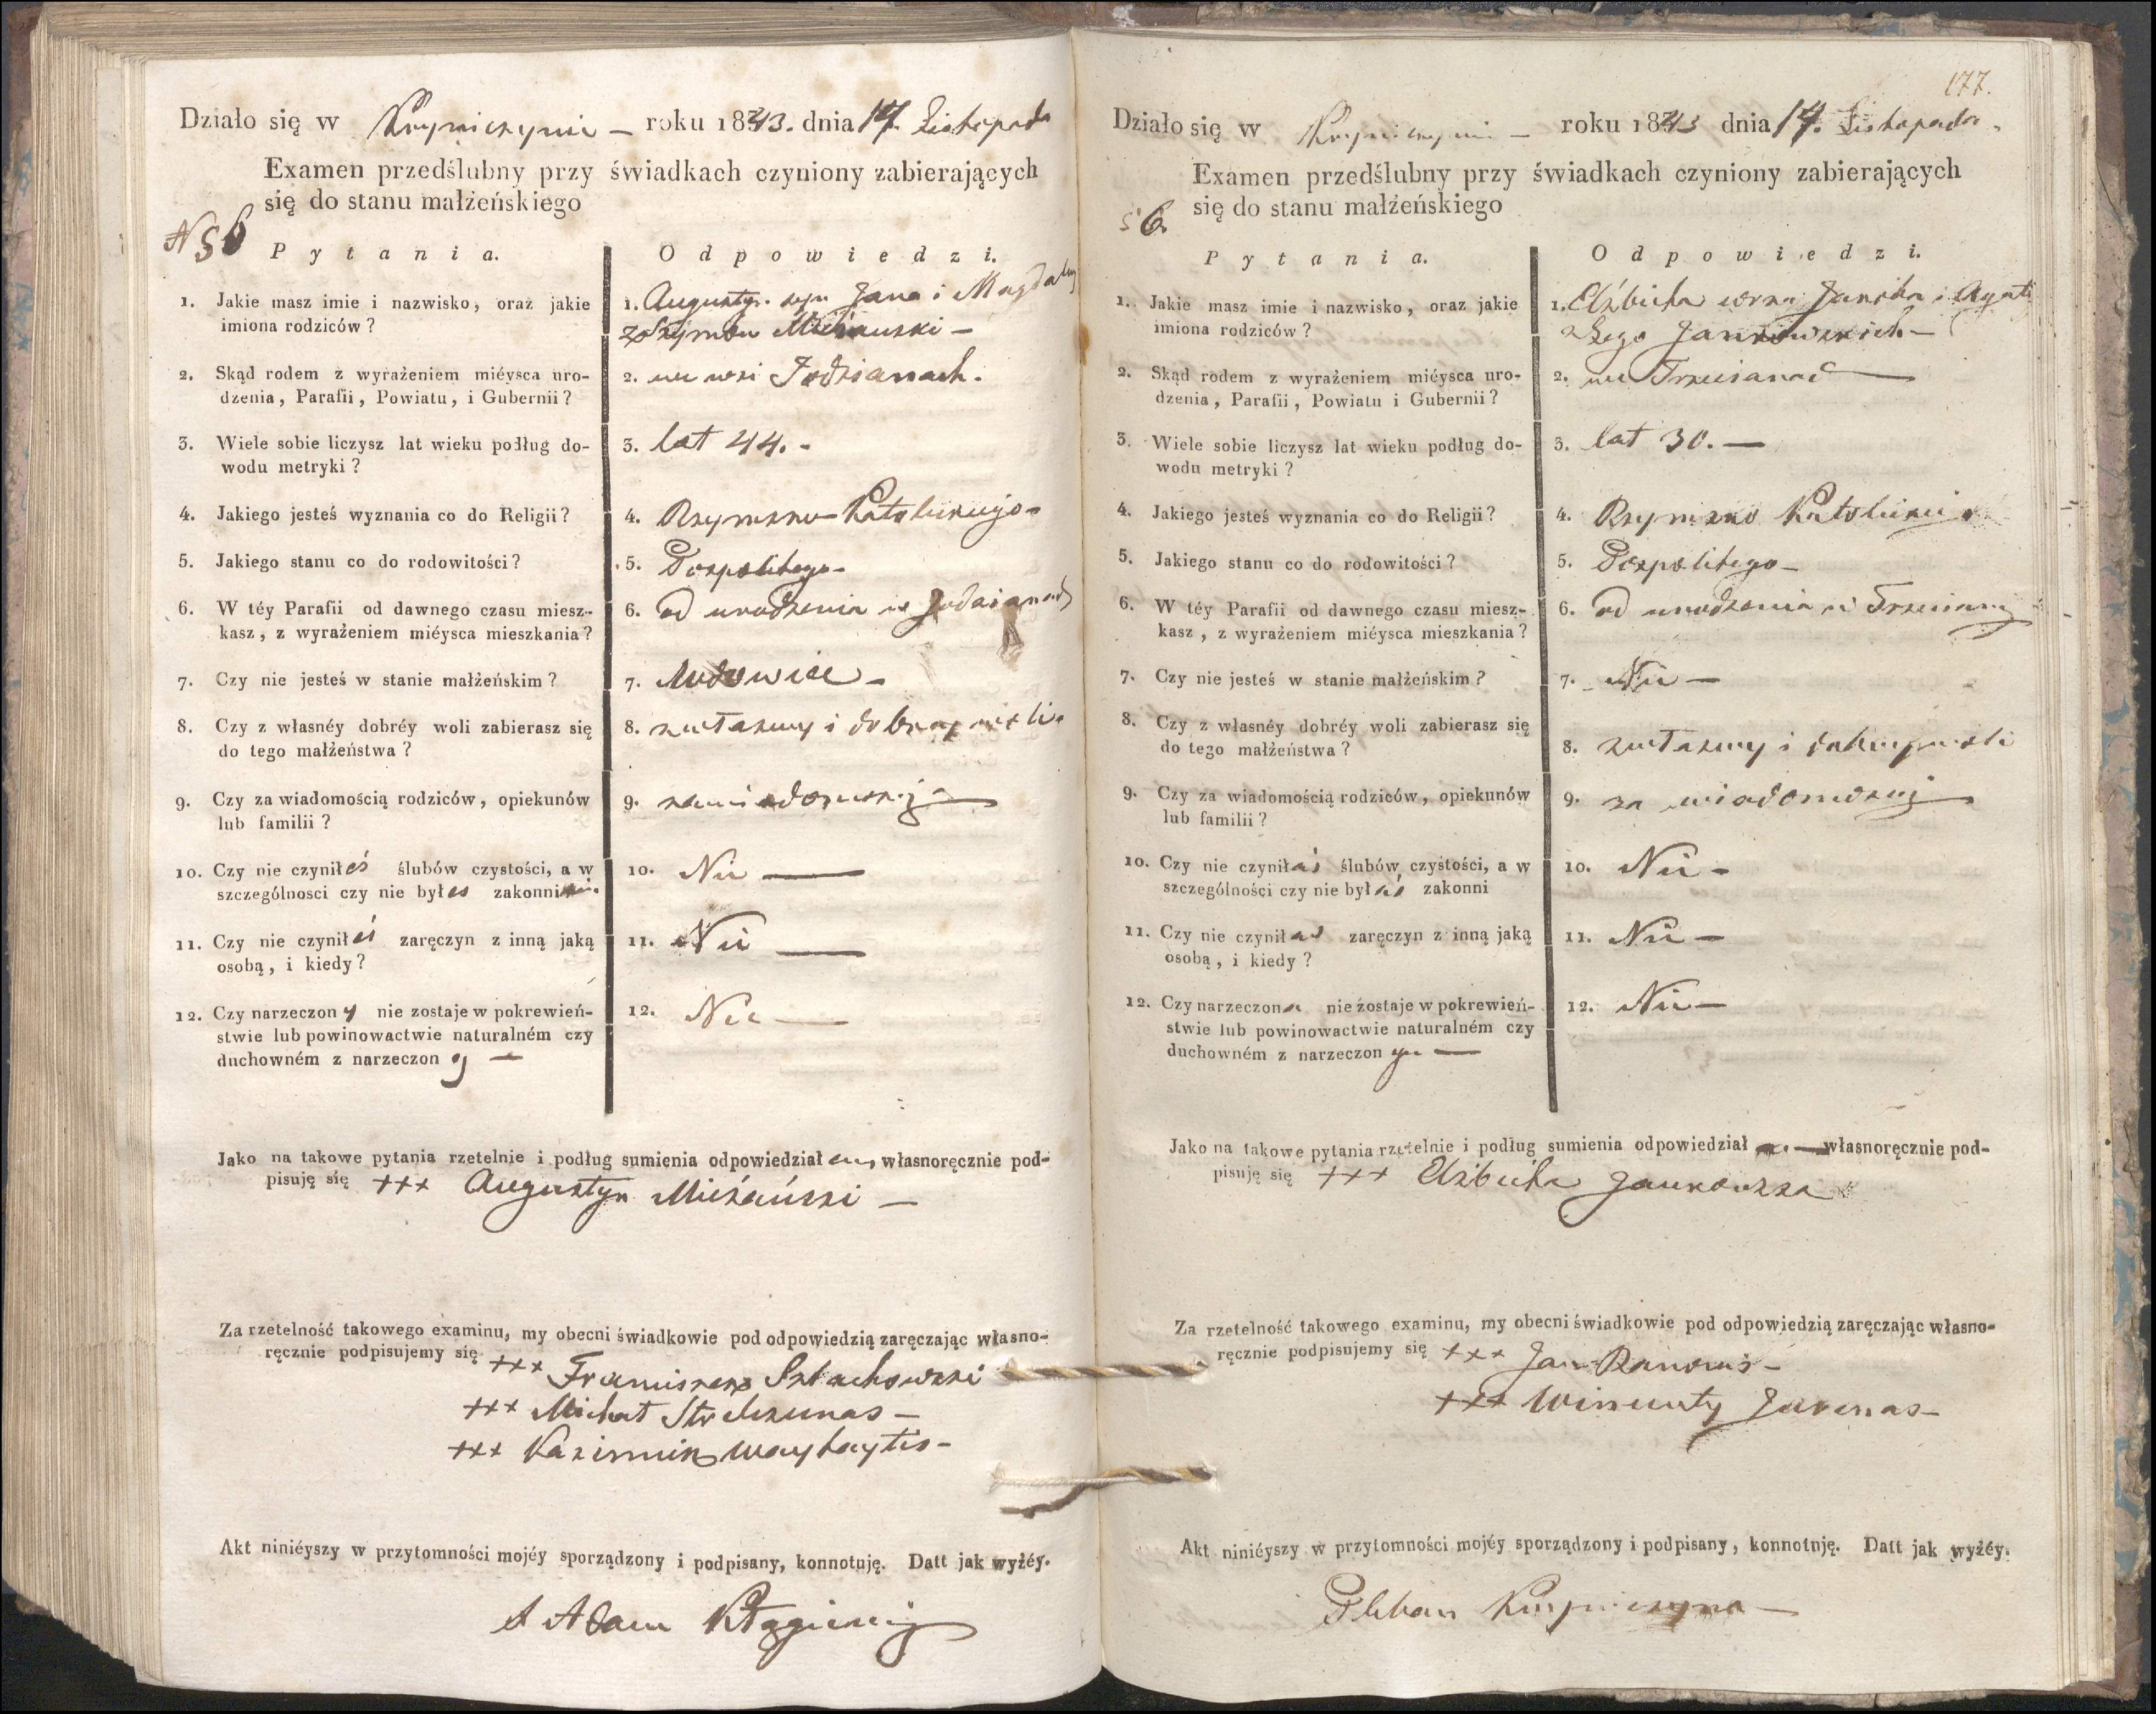 Działo się w Krupniczynie – roku 1843. dnia 14. Listopada
Examen przedślubny przy świadkach czyniony zabierających
się do stanu małżeńskiego
N 56
Pytania. Odpowiedzi.
1. Jakie masz imie i nazwisko, oraz jakie
imiona rodziców?
1. Augustyn syn Jana i Magdaleny
2. Skąd rodem z wyrażeniem miéysca uro-
dzenia, Parafii, Powiatu, i Gubernii?
2. we wsi Jodzianach.
3. Wiele sobie liczysz lat wieku podług do-
wodu metryki?
3. lat 44. -
4. Jakiego jesteś wyznania co do Religii?
4. Rzymsko Katolickiego -
5. Jakiego stanu co do rodowitości?
5. Pospolitego -
6. W téy Parafii od dawnego czasu miesz-
kasz, z wyrażeniem miéysca mieszkania?
6. od urodzenia w Jodzianach
7. Czy nie jesteś w stanie małżeńskim?
7. Wdowiec -
8. Czy z własnéy dobréy woli zabierasz się
do tego małżeństwa?
8. z własney i dobrey woli.
9. Czy za wiadomością rodziców, opiekunów
lub familii?
9. za wiadomością
10. Czy nie czyniłeś ślubów czystości, a w
szczególnosci czy nie byłes zakonnikiem.
10. Nie —
11. Czy nie czyniłeś zaręczyn z inną jaką
osobą, i kiedy?
11. Nie —
12. Czy narzeczony nie zostaje w pokrewień-
stwie lub powinowactwie naturalném czy
duchowném z narzeczon ą —
12. Nie —
Jako na takowe pytania rzetelnie i podług sumienia odpowiedział em, własnoręcznie pod-
pisuję się +++ Augustyn Mieżański —
Za rzetelność takowego examinu, my obecni świadkowie pod odpowiedzią zaręczając własno-
ręcznie podpisujemy się +++ Franciszek Szlachowski
+++ Michał Strelczunas —
+++ Kazimierz Woytkaytis -
Akt niniéyszy w przytomności mojéy sporządzony i podpisany, konnotuję. Datt jak wyżéy.
X Adam
177.
Działo się w Krupniczynie – roku 1843 dnia 14. Listopada.
Examen przedślubny przy świadkach czyniony zabierających
się do stanu małżeńskiego
56.
Pytania. Odpowiedzi.
1. Jakie masz imie i nazwisko, oraz jakie
imiona rodziców?
1. Elżbieta córka i Agaty
Jankowskich —
2. Skąd rodem z wyrażeniem miéysca uro-
dzenia, Parafii, Powiatu i Gubernii?
2. we Trzcianac —
3. Wiele sobie liczysz lat wieku podług do-
wodu metryki?
3. lat 30. —
4. Jakiego jesteś wyznania co do Religii?
4. Rzymsko Katolickie
5. Jakiego stanu co do rodowitości?
5. Pospolitego —
6. W téy Parafii od dawnego czasu miesz-
kasz, z wyrażeniem miéysca mieszkania?
6. od urodzenia w
7. Czy nie jesteś w stanie małżeńskim?
7. Nie —
8. Czy z własnéy dobréy woli zabierasz się
do tego małżeństwa?
8. z własney i dobrey woli
9. Czy za wiadomością rodziców, opiekunów
lub familii?
9. za wiadomością
10. Czy nie czyniłaś ślubów czystości, a w
szczególności czy nie byłaś zakonni
10. Nie -
11. Czy nie czyniłaś zaręczyn z inną jaką
osobą, i kiedy?
11. Nie -
12. Czy narzeczona nie zostaje w pokrewień-
stwie lub powinowactwie naturalném czy
duchowném z narzeczon ym —
12. Nie -
Jako na takowe pytania rzetelnie i podług sumienia odpowiedział am — własnoręcznie pod-
pisuję się +++ Elżbieta Jankowska
Za rzetelność takowego examinu, my obecni świadkowie pod odpowiedzią zaręczając własno-
ręcznie podpisujemy się +++ Jan
+++ Wincenty
Akt niniéyszy w przytomności mojéy sporządzony i podpisany, konnotuję. Datt jak wyżéy.
Pleban